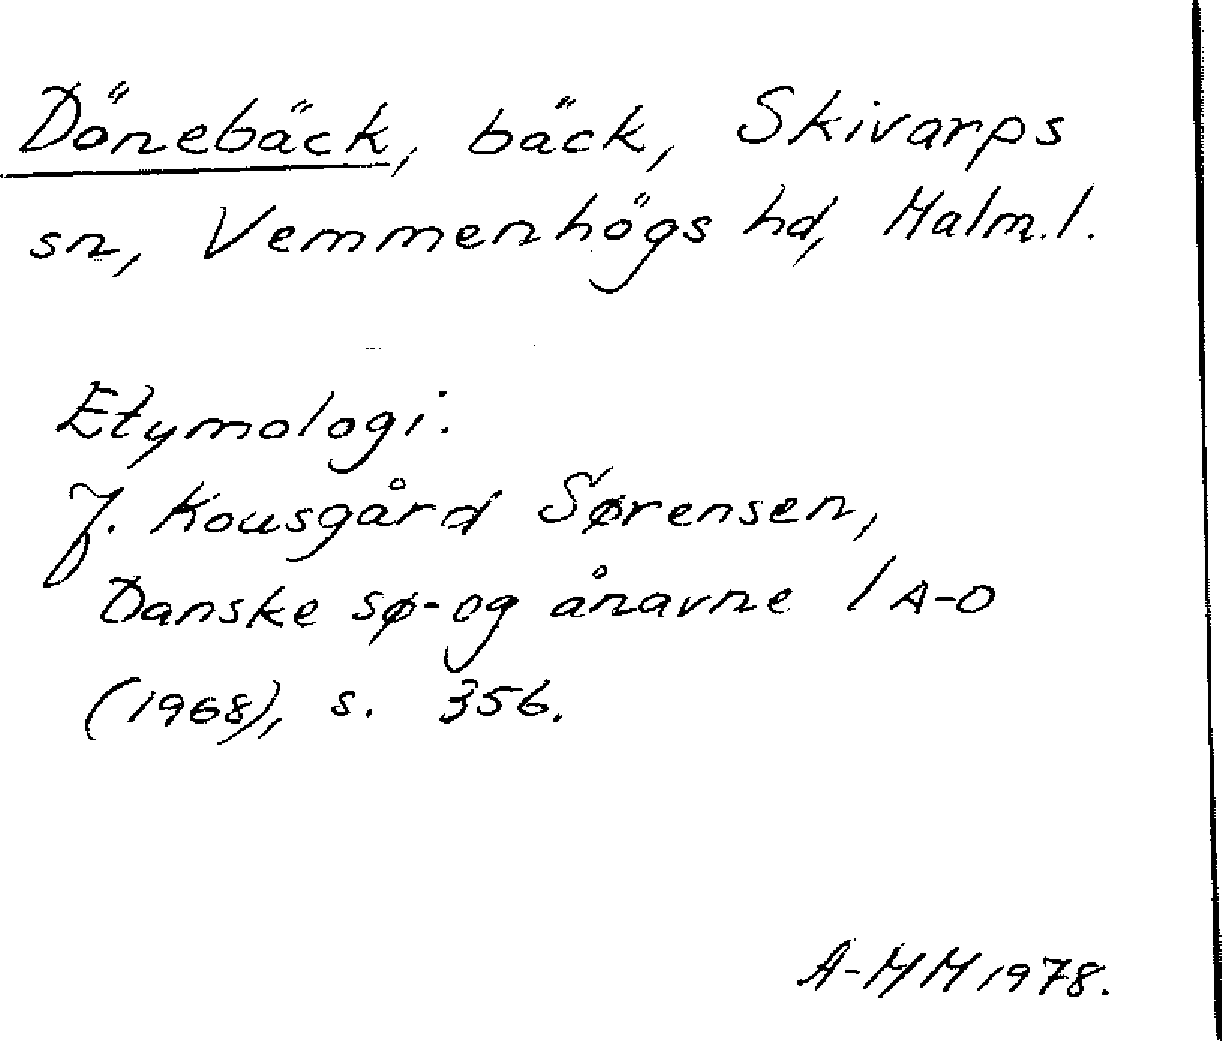 Dönebäck, bäck, Skivarps
sn, Vemmenhögs hd, Malm.l.
Etymologi:
J. Kousgård Sørensen,
Danske sø- og ånavne I A-D
(1968), s. 356.
A-MM 1978.